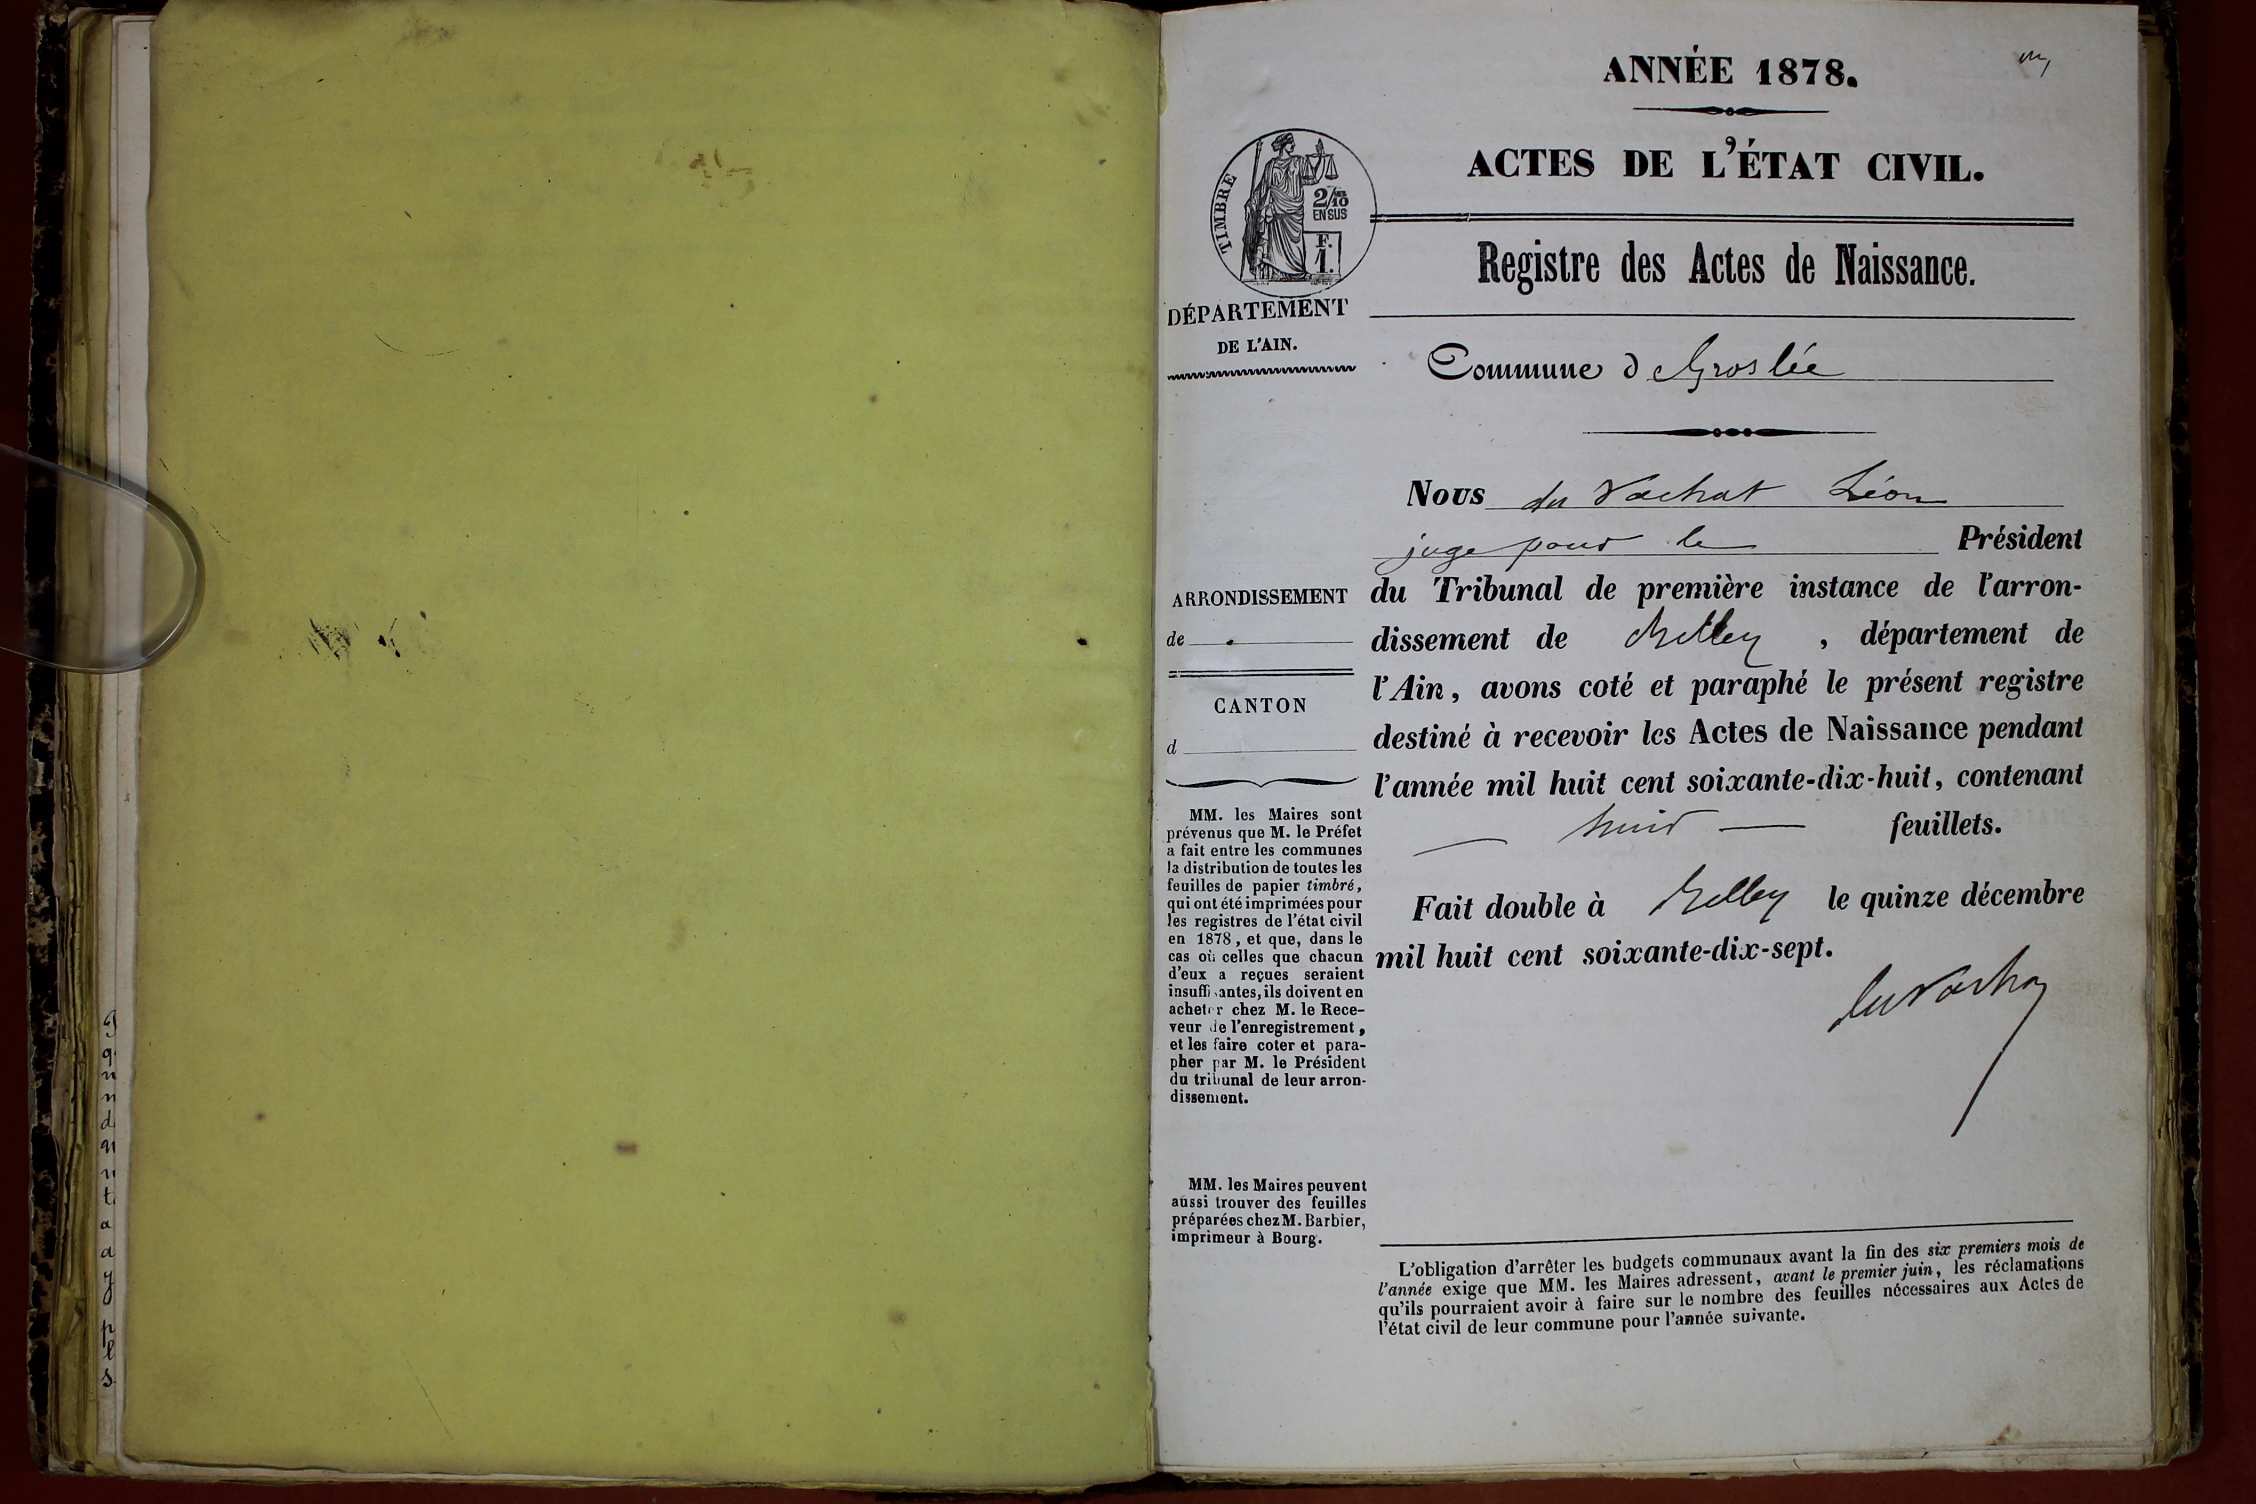 ANNÉE 1878.
ACTES DE L'ÉTAT CIVIL.
TIMBRE
2/10
EN SUS
F.
1.
Registre des Actes de Naissance.
DÉPARTEMENT
DE L'AIN.
Commune d Groslée
Nous du Vachat Léon
juge pour le Président
du Tribunal de première instance de l'arron-
dissement de Belley, département de
l'Ain, avons coté et paraphé le présent registre
destiné à recevoir les Actes de Naissance pendant
l'année mil huit cent soixante-dix-huit, contenant
— huit — feuillets.
Fait double à Belley le quinze décembre
mil huit cent soixante-dix-sept.
du Vachat
ARRONDISSEMENT
de
CANTON
d
MM. les Maires sont
prévenus que M. le Préfet
a fait entre les communes
la distribution de toutes les
feuilles de papier timbré,
qui ont été imprimées pour
les registres de l'état civil
en 1878, et que, dans le
cas où celles que chacun
d'eux a reçues seraient
insuffisantes, ils doivent en
acheter chez M. le Rece-
veur de l'enregistrement,
et les faire coter et para-
pher par M. le Président
du tribunal de leur arron-
dissement.
MM. les Maires peuvent
aussi trouver des feuilles
préparées chez M. Barbier,
imprimeur à Bourg.
L'obligation d'arrêter les budgets communaux avant la fin des six premiers mois de
l'année exige que MM. les Maires adressent, avant le premier juin, les réclamations
qu'ils pourraient avoir à faire sur le nombre des feuilles nécessaires aux Actes de
l'état civil de leur commune pour l'année suivante.